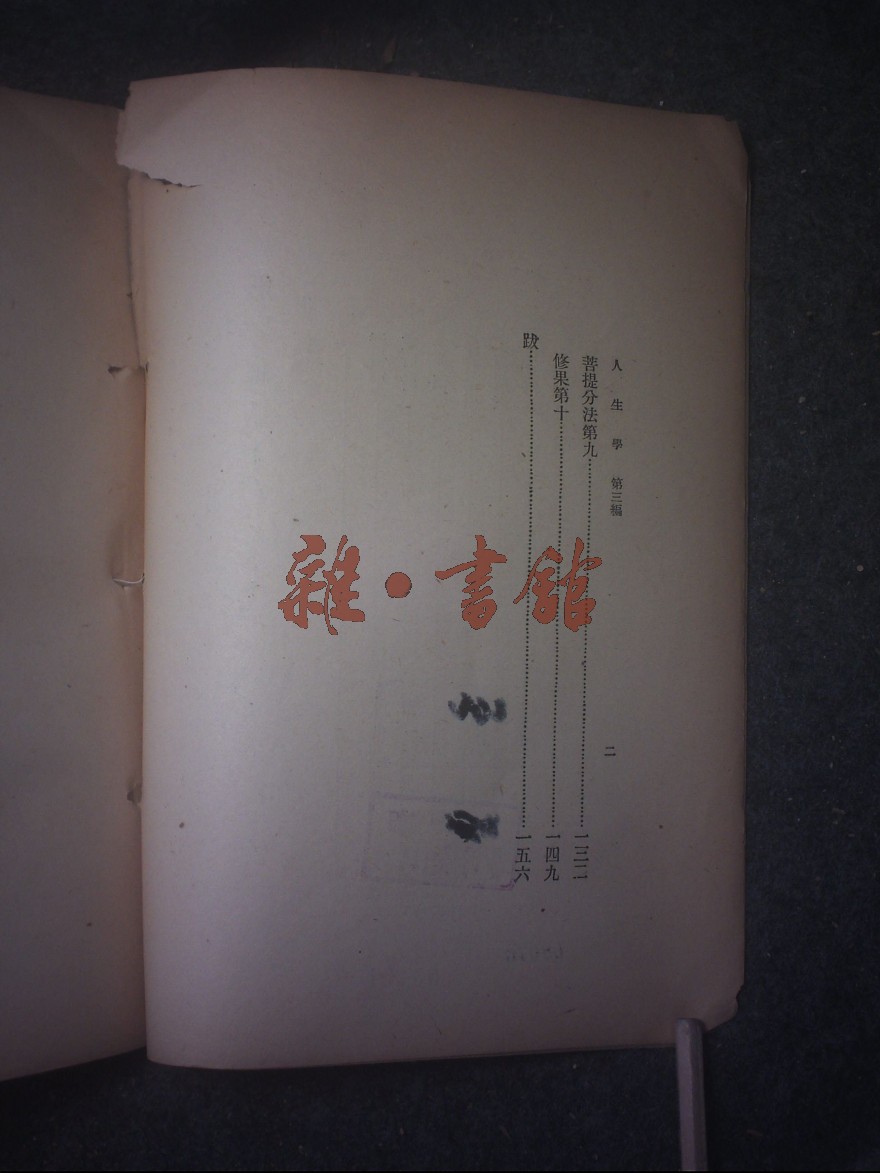 人生學 第三編
二
菩提分法第九……一三二
修果第十……一四九
跋……一五六
雜·書館